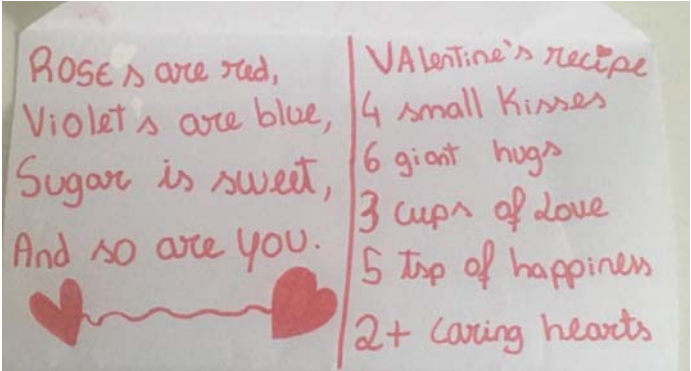 ROSEs are red,
Violets are blue,
Sugar is sweet,
And so are YOU.
VAlentine's recipe
4 small Kisses
6 giant hugs
3 cups of Love
5 tsp of happiness
2+ caring hearts